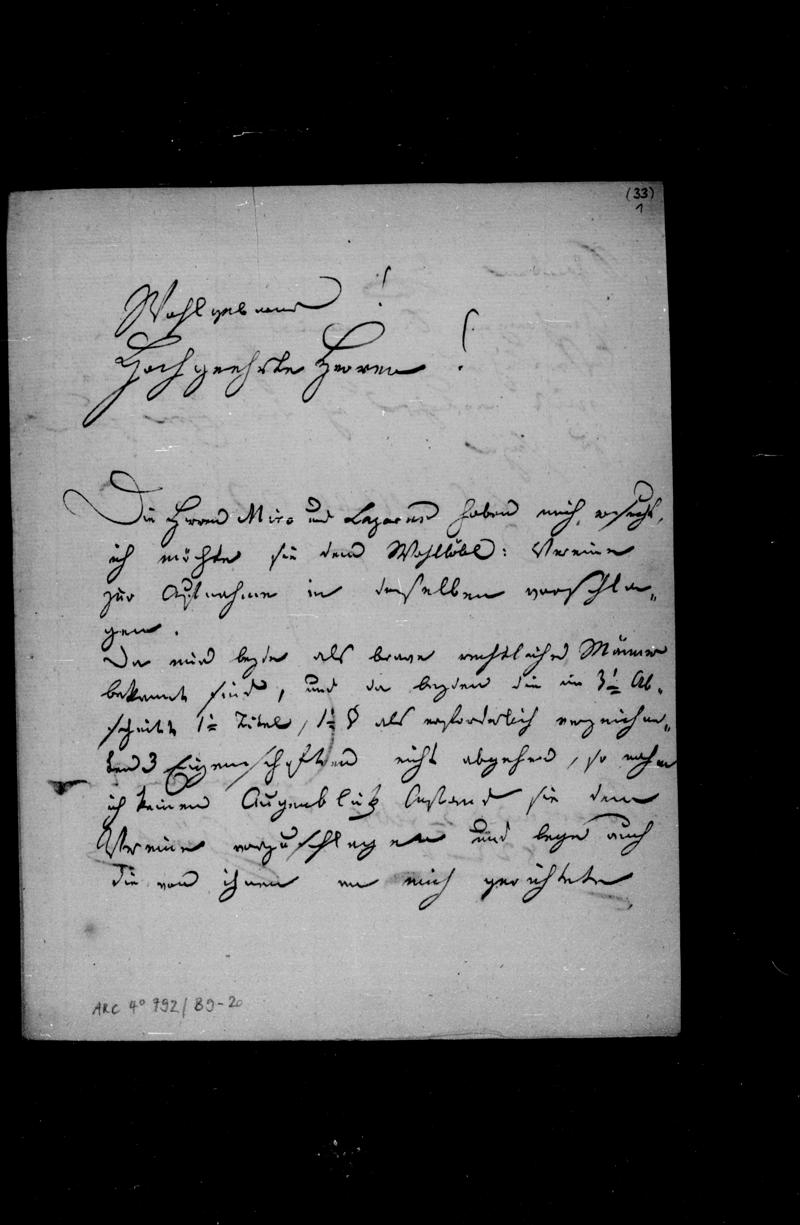 (33)
1
Wohlgeborne !
Hochgeehrte Herren !
Die Herren Miro und Lazarus haben mich ersucht,
ich möchte sie dem Wohllöbl: Vereine
zur Aufnahme in denselben vorschla-
gen.
Da mir beyde als brave rechtliche Männer
bekannt sind, und da beyden die im 3t Ab-
schnitt 1t Titel, 1t § als erforderlich verzeichne-
ten 3 Eigenschaften nicht abgehen, so nahm
ich keinen Augenblick Anstand sie dem
Vereine vorzuschlagen und lege auch
die von ihnen an mich gerichtete
ARC 4° 792/B9-20